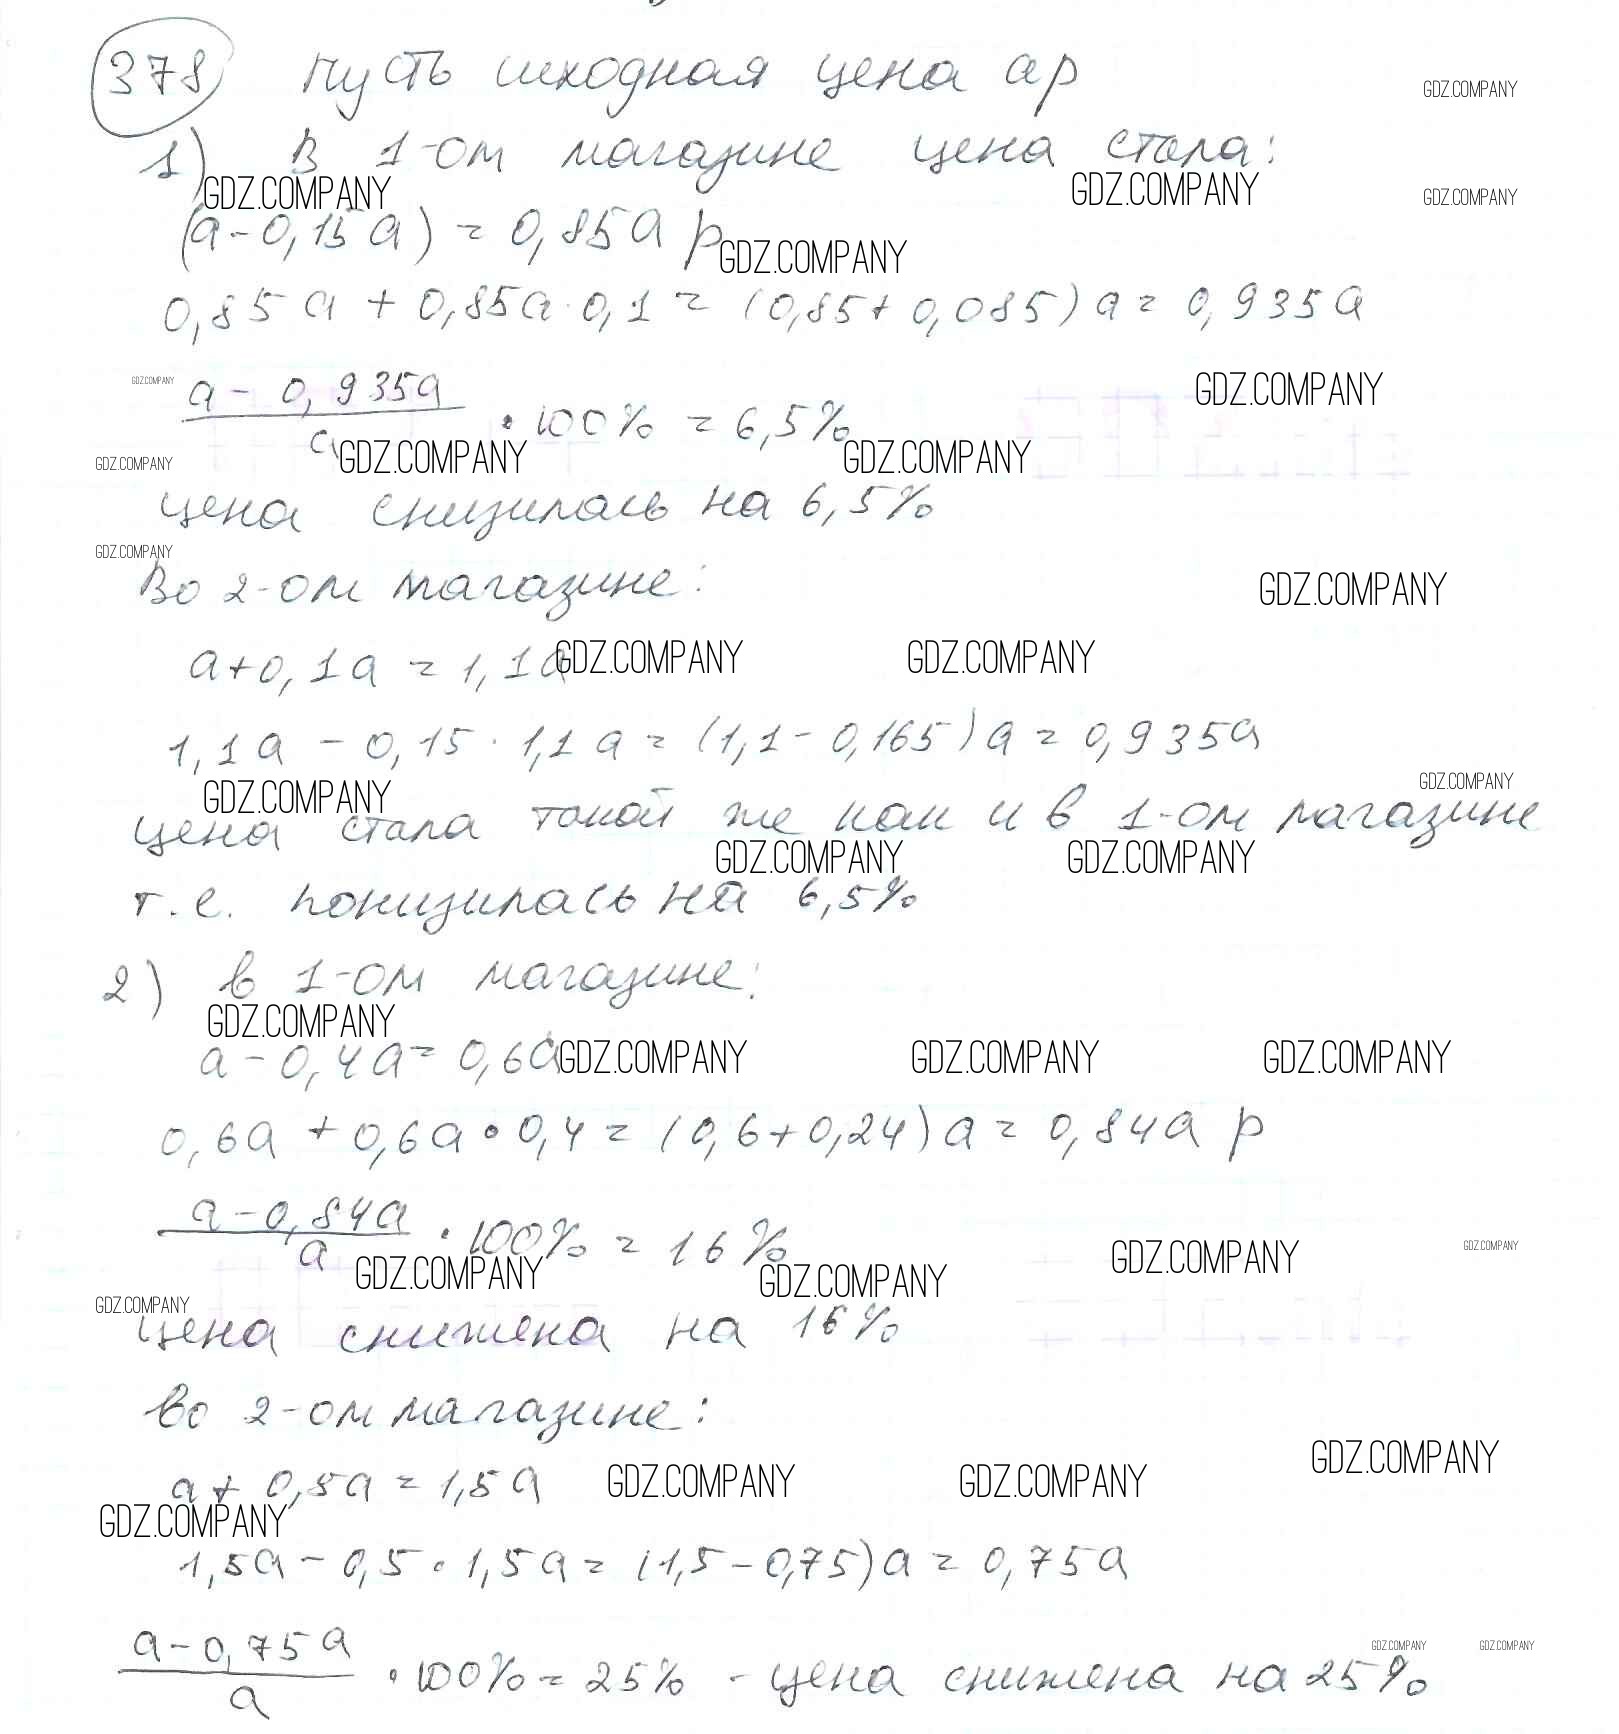 378 Пусть исходная цена а р
GDZ.COMPANY
1) В 1-ом магазине цена стала:
GDZ.COMPANY GDZ.COMPANY GDZ.COMPANY
(а - 0,15а) = 0,85а р
GDZ.COMPANY
0,85а + 0,85а · 0,1 = (0,85 + 0,085) а = 0,935а
GDZ.COMPANY GDZ.COMPANY
(а - 0,935а) / а · 100% = 6,5%
GDZ.COMPANY GDZ.COMPANY GDZ.COMPANY
цена снизилась на 6,5%
GDZ.COMPANY
Во 2-ом магазине:
GDZ.COMPANY
а + 0,1а = 1,1а
GDZ.COMPANY GDZ.COMPANY
1,1а - 0,15 · 1,1а = (1,1 - 0,165) а = 0,935а
GDZ.COMPANY GDZ.COMPANY
цена стала такой же как и в 1-ом магазине
GDZ.COMPANY GDZ.COMPANY
т.е. понизилась на 6,5%
2) в 1-ом магазине:
GDZ.COMPANY
а - 0,4а = 0,6а
GDZ.COMPANY GDZ.COMPANY GDZ.COMPANY
0,6а + 0,6а · 0,4 = (0,6 + 0,24) а = 0,84а р
(а - 0,84а) / а · 100% = 16%
GDZ.COMPANY GDZ.COMPANY GDZ.COMPANY GDZ.COMPANY
GDZ.COMPANY
цена снижена на 16%
во 2-ом магазине:
GDZ.COMPANY
а + 0,5а = 1,5а
GDZ.COMPANY GDZ.COMPANY
GDZ.COMPANY
1,5а - 0,5 · 1,5а = (1,5 - 0,75) а = 0,75а
GDZ.COMPANY GDZ.COMPANY
(а - 0,75а) / а · 100% = 25% - цена снижена на 25%